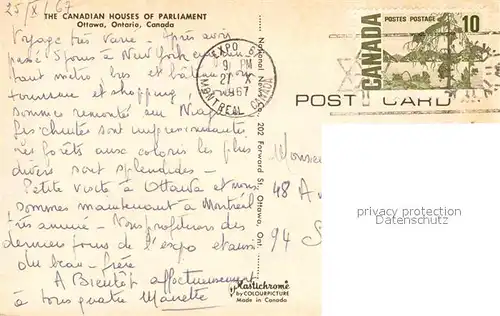 25/X/67
THE CANADIAN HOUSES OF PARLIAMENT
Ottawa, Ontario, Canada
Voyage très varié. Après avoir
passé 5 jours à New York
haut métro, bus et
et shopping, nous
sommes remontés sur Niag
Les chutes sont impressionnantes
les forêts aux coloris les plus
divers sont splendides -
Petite visite à Ottawa et nous
sommes maintenant à Montréal
très animé - Nous profiterons des
derniers jours de l'expo et aussi
du beau-frère
A Bientôt affectueusement
à tous quatre
Plastichrome
by COLOURPICTURE
Made in Canada
National News Co., 202 Forward St., Ottawa, Ont.
EXPO
9 PM
27 X
1967
MONTREAL CANADA
CANADA
POSTES POSTAGE
10
POST CARD
Monsieu
48 A
94 S
privacy protection